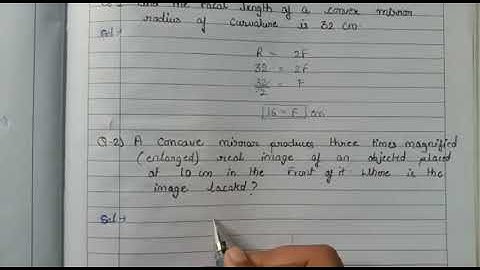 the focal length of a convex mirror
radius of curvature is 32 cm
Sol →
R = 2F
32 = 2F
32/2 = F
16 = F cm
Q-2) A concave mirror produces three times magnified
(enlarged) real image of an objected placed
at 10 cm in the front of it where is the
image located?
Sol →